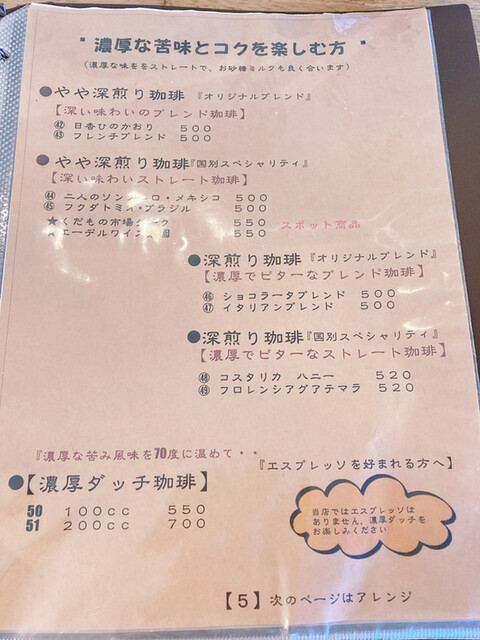 " 濃厚な苦味とコクを楽しむ方 "
(濃厚な味ををストレートで、お砂糖ミルクも良く合います)
●やや深煎り珈琲『オリジナルブレンド』
【深い味わいのブレンド珈琲】
㊷ 日香ひのかおり 500
㊸ フレンチブレンド 500
●やや深煎り珈琲『国別スペシャリティ』
【深い味わいストレート珈琲】
㊹ 二人のソン ロ・メキシコ 500
㊺ フクダトミオ・ブラジル 500
★くだもの市場 550 スポット商品
エーデルワイス 園 550
●深煎り珈琲『オリジナルブレンド』
【濃厚でビターなブレンド珈琲】
㊻ ショコラータブレンド 500
㊼ イタリアンブレンド 500
●深煎り珈琲『国別スペシャリティ』
【濃厚でビターなストレート珈琲】
㊽ コスタリカ ハニー 520
㊾ フロレンシアグアテマラ 520
『濃厚な苦み風味を70度に温めて・・
●【濃厚ダッチ珈琲】
50 100cc 550
51 200cc 700
『エスプレッソを好まれる方へ】
当店ではエスプレッソは
ありません、濃厚ダッチを
お楽しみください
【5】次のページはアレンジ